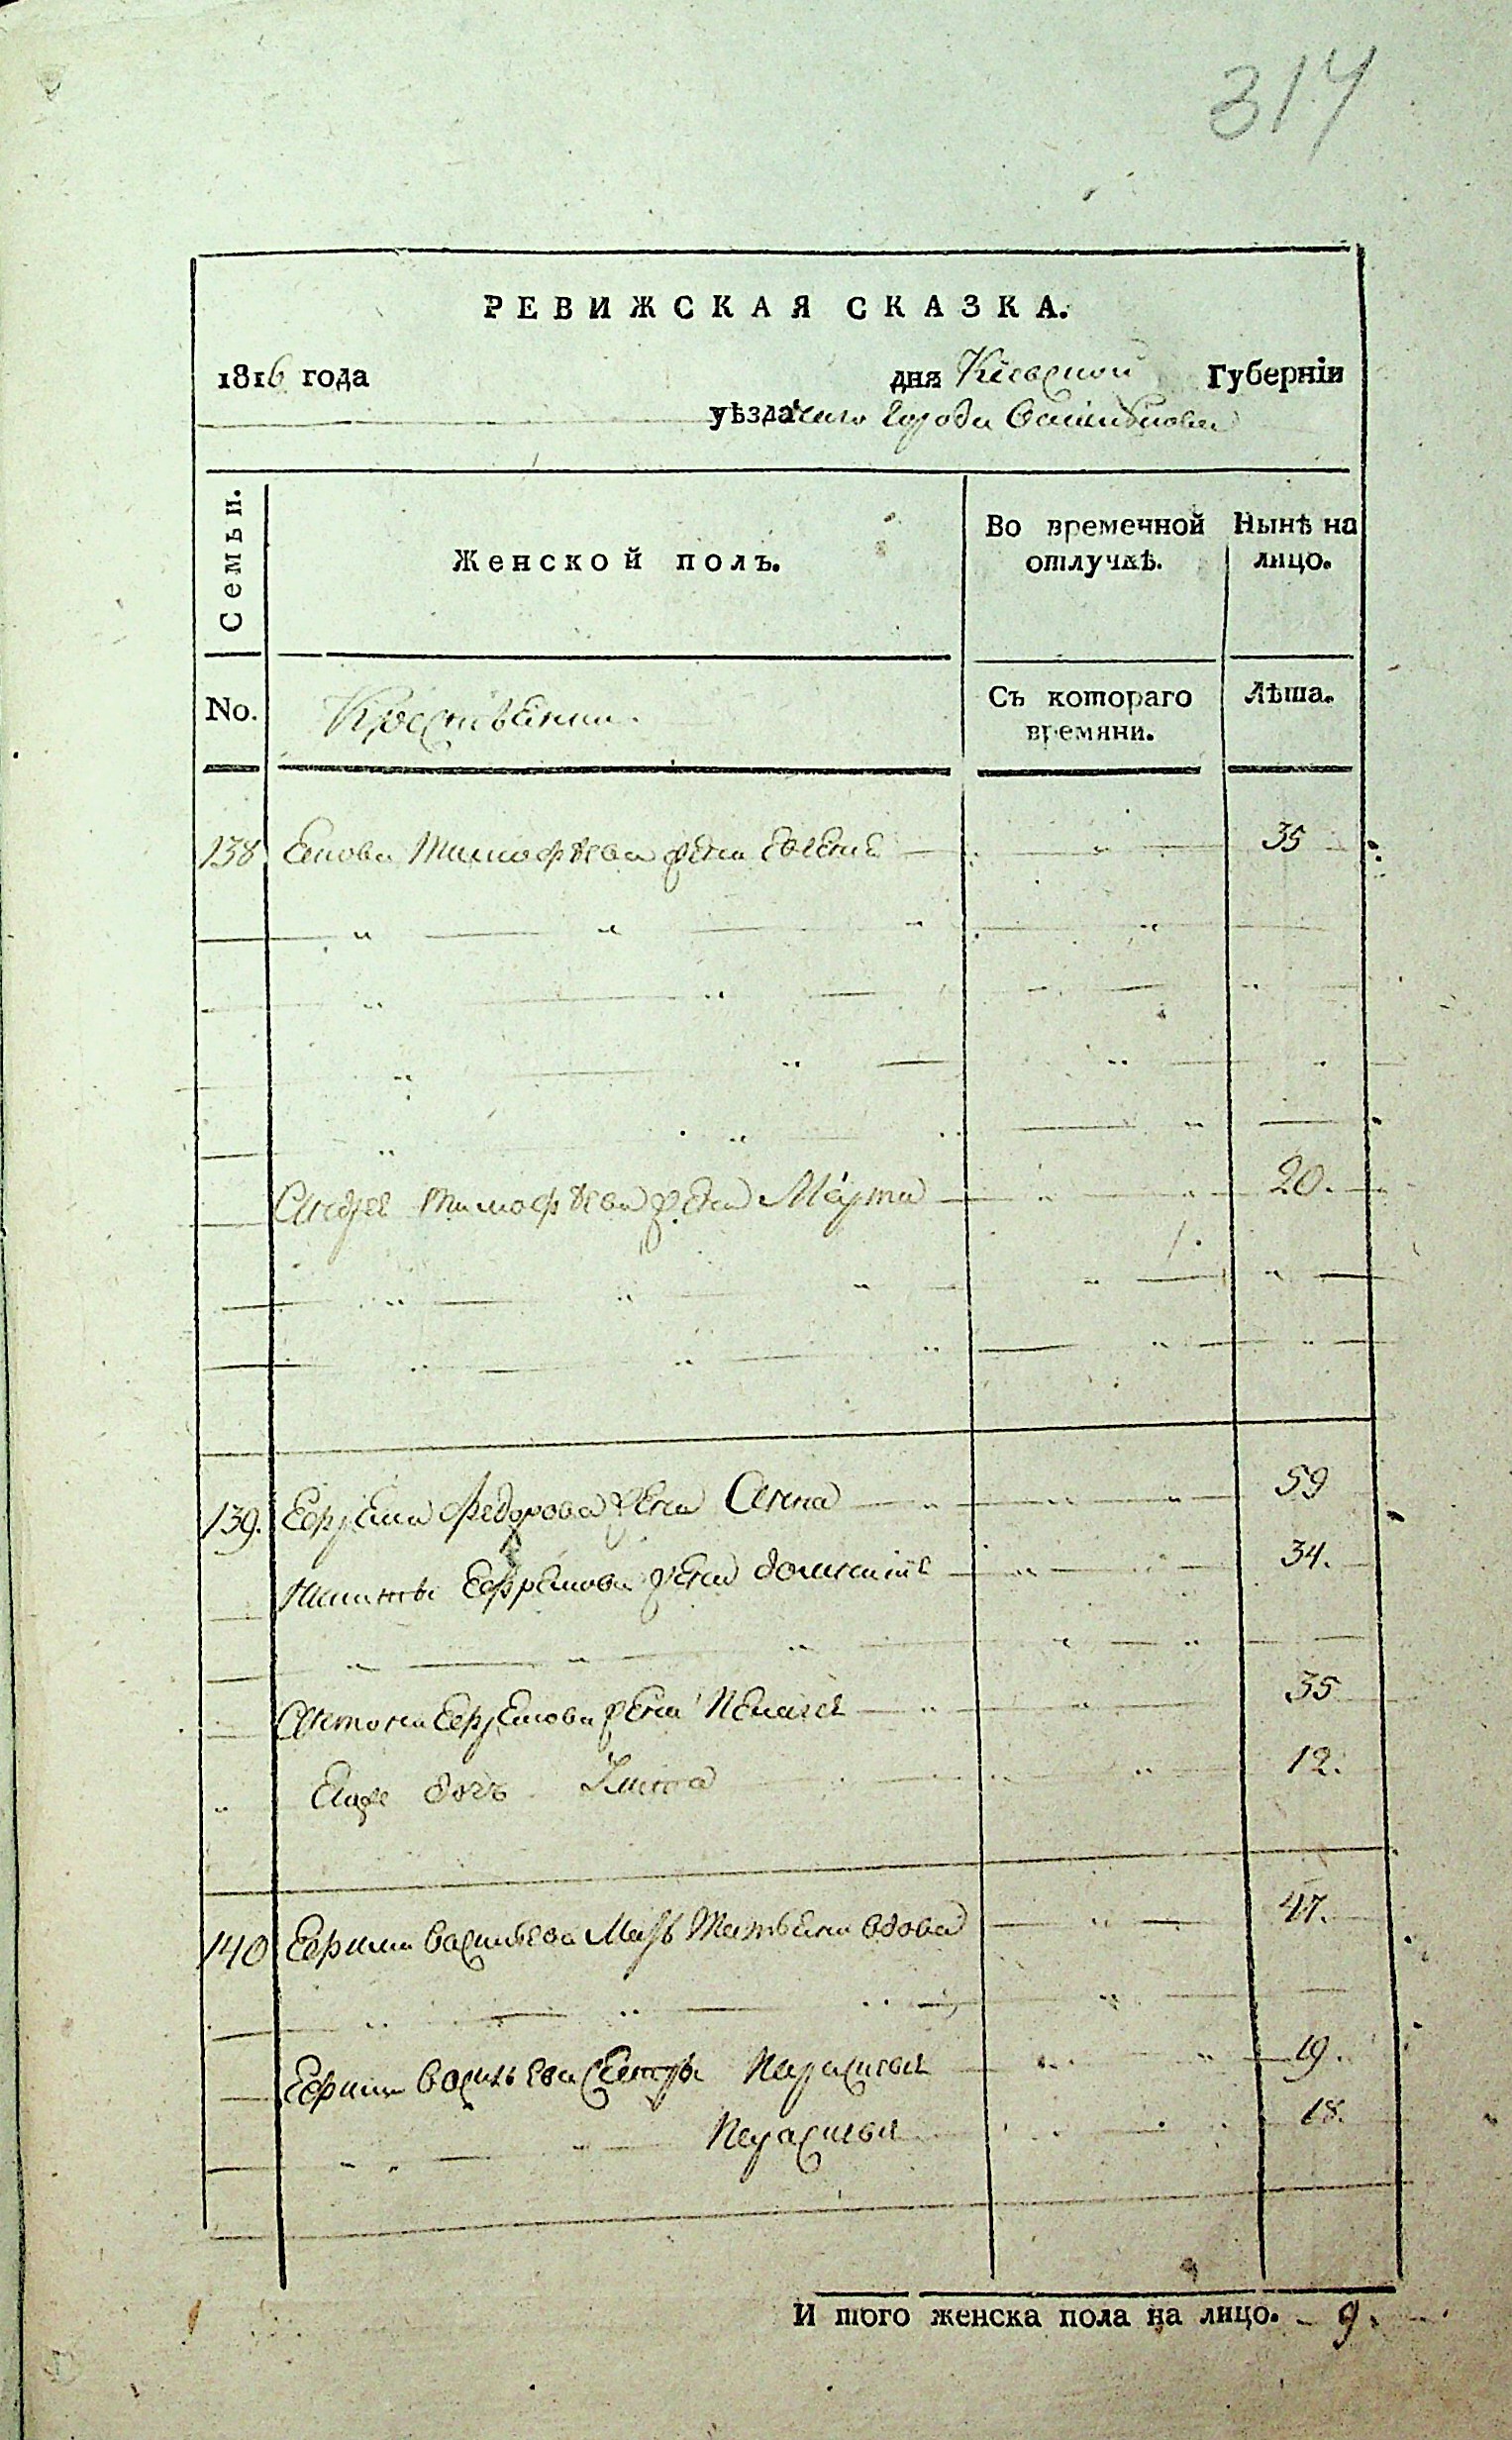 314
РЕВИЖСКАЯ СКАЗКА.
1816 года дня Кіевской Губерніи
уѣзда города
Семьи. Женской полъ. Во временной отлучкѣ. Нынѣ на лицо.
No. Съ котораго времяни. Лѣта.
138 Тимофѣева жена 35
Андрея Тимофѣева жена Марта 20.
139. Ефрема Федорова жена Анна 59
Никиты Ефремова жена Домникія 34.
Антона Ефремова жена Пелагея 35
Ещее дочъ 12.
140 Ефима Васильева Мать Татьяна вдова 47.
Ефима Васильева Сестры Параскевия 19.
Параскевия 18.
И того женска пола на лицо. 9.